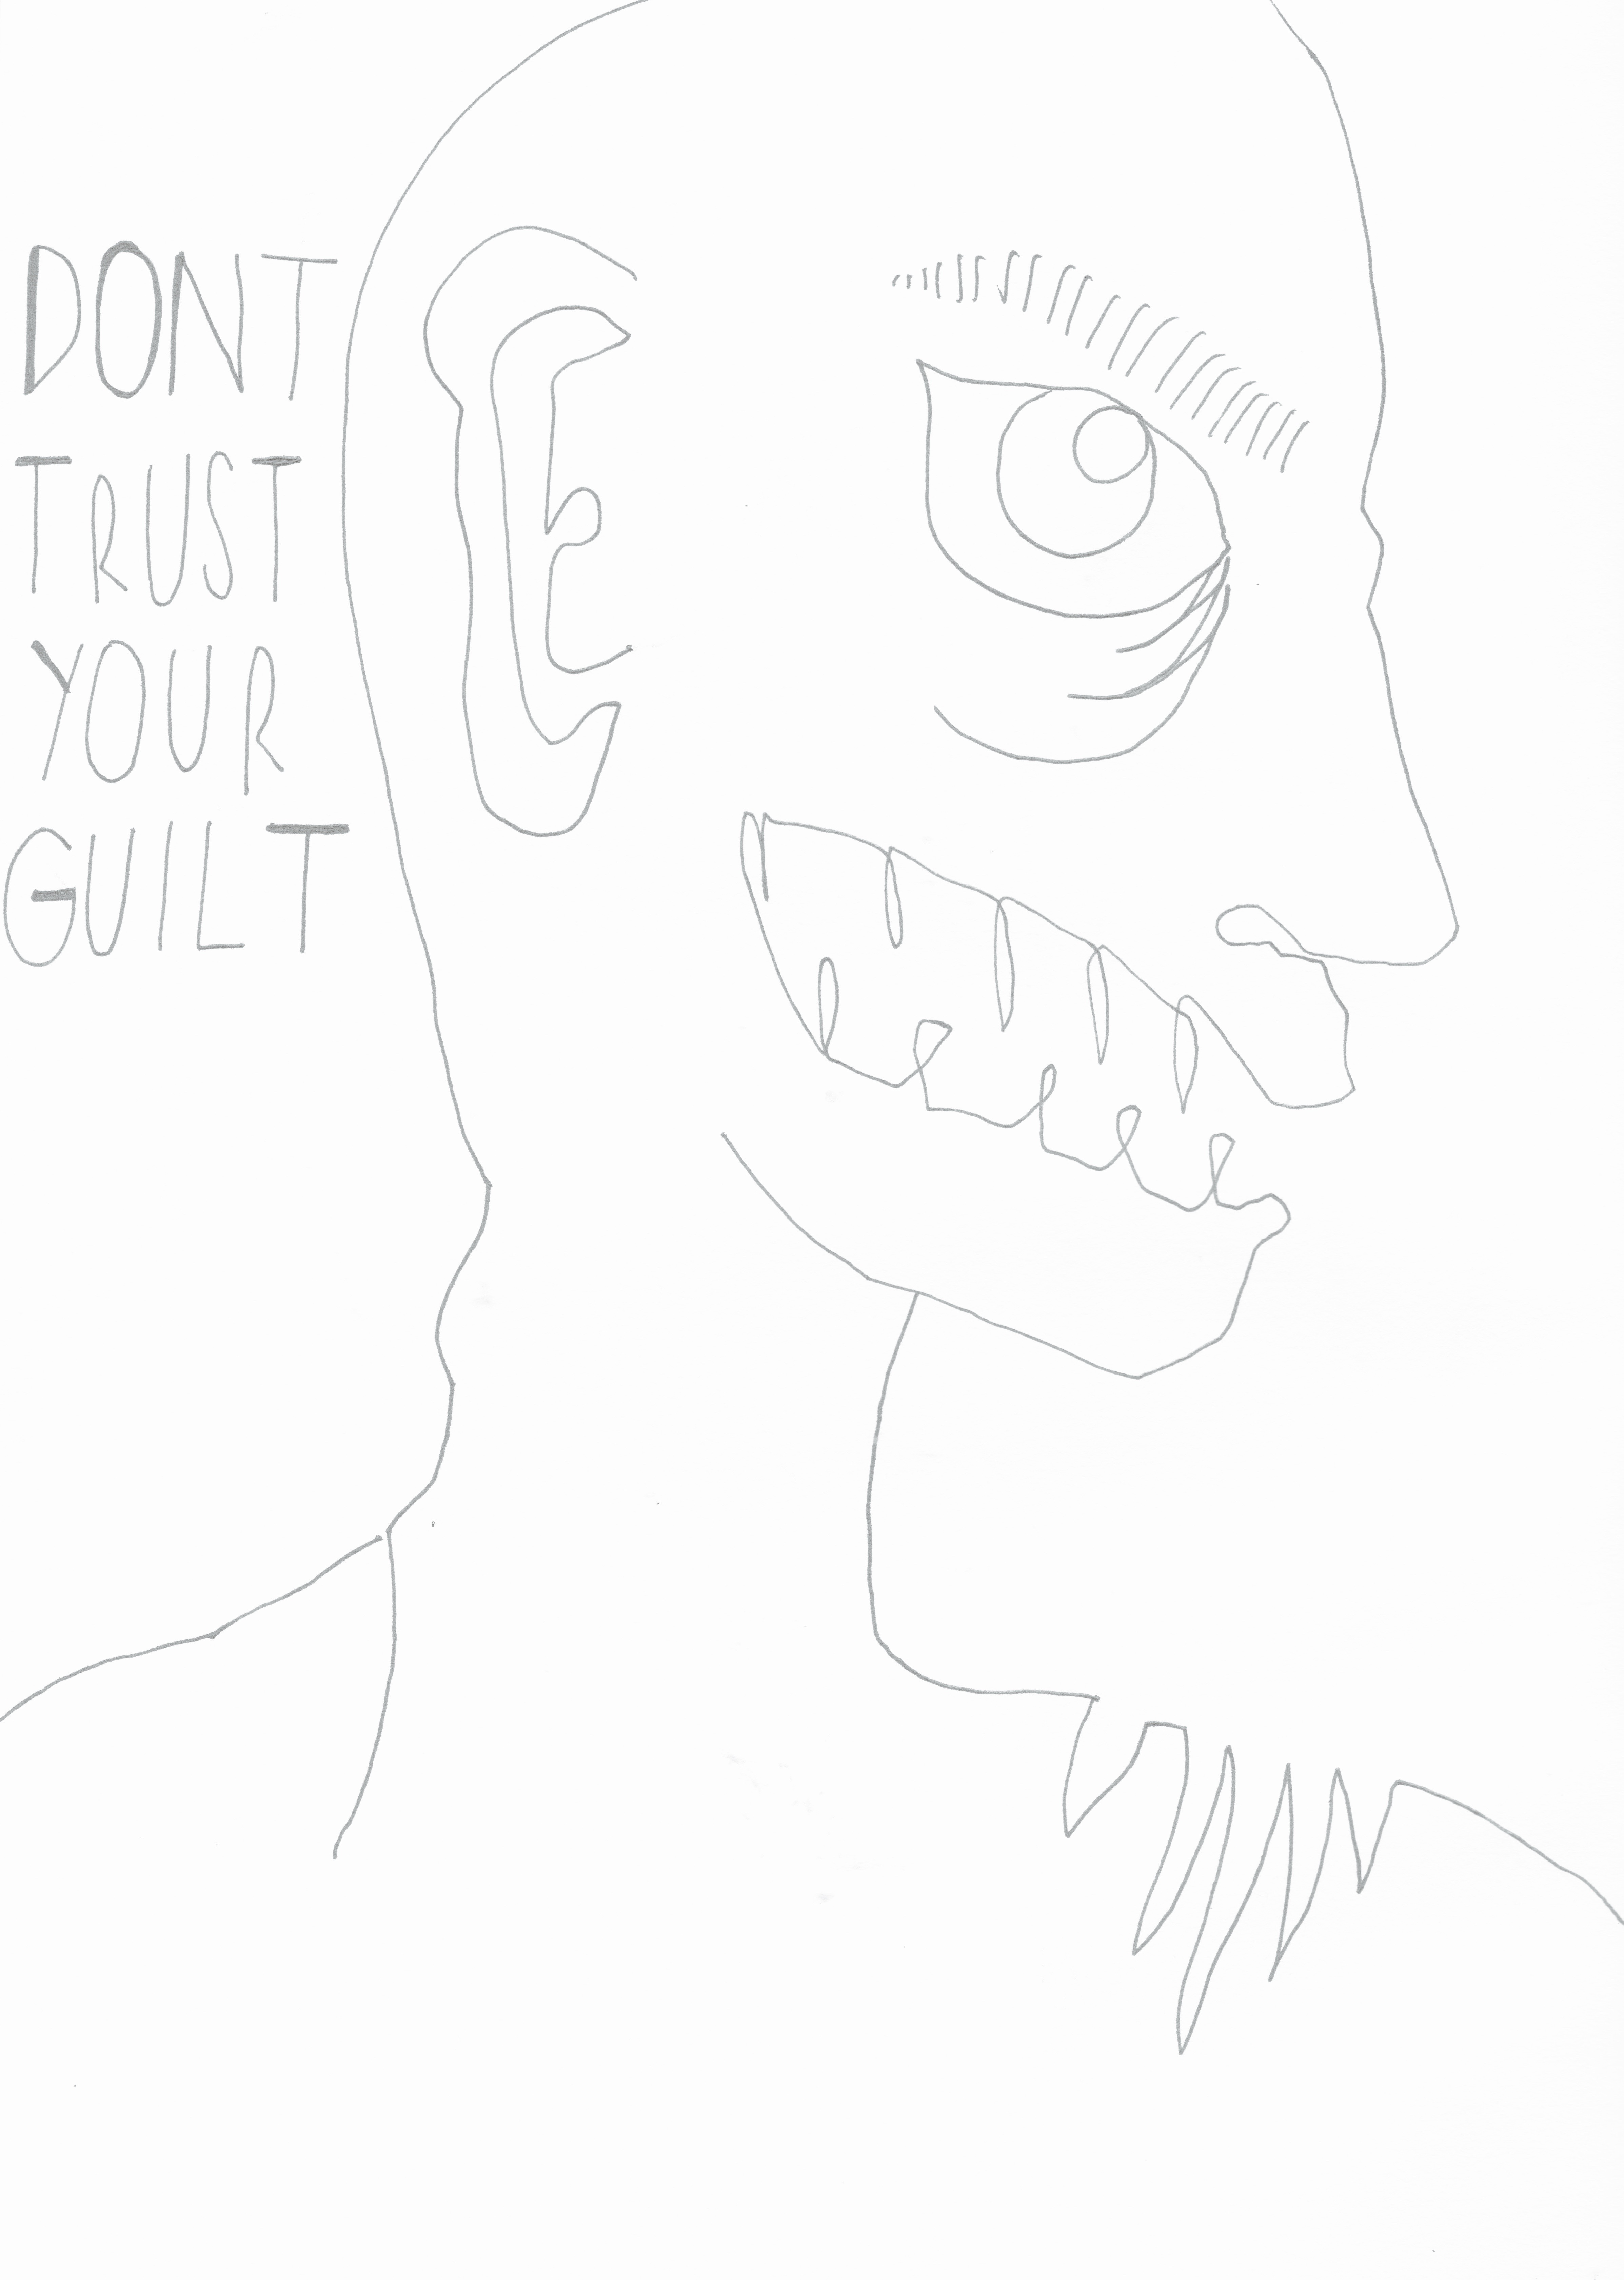 DONT
TRUST
YOUR
GUILT